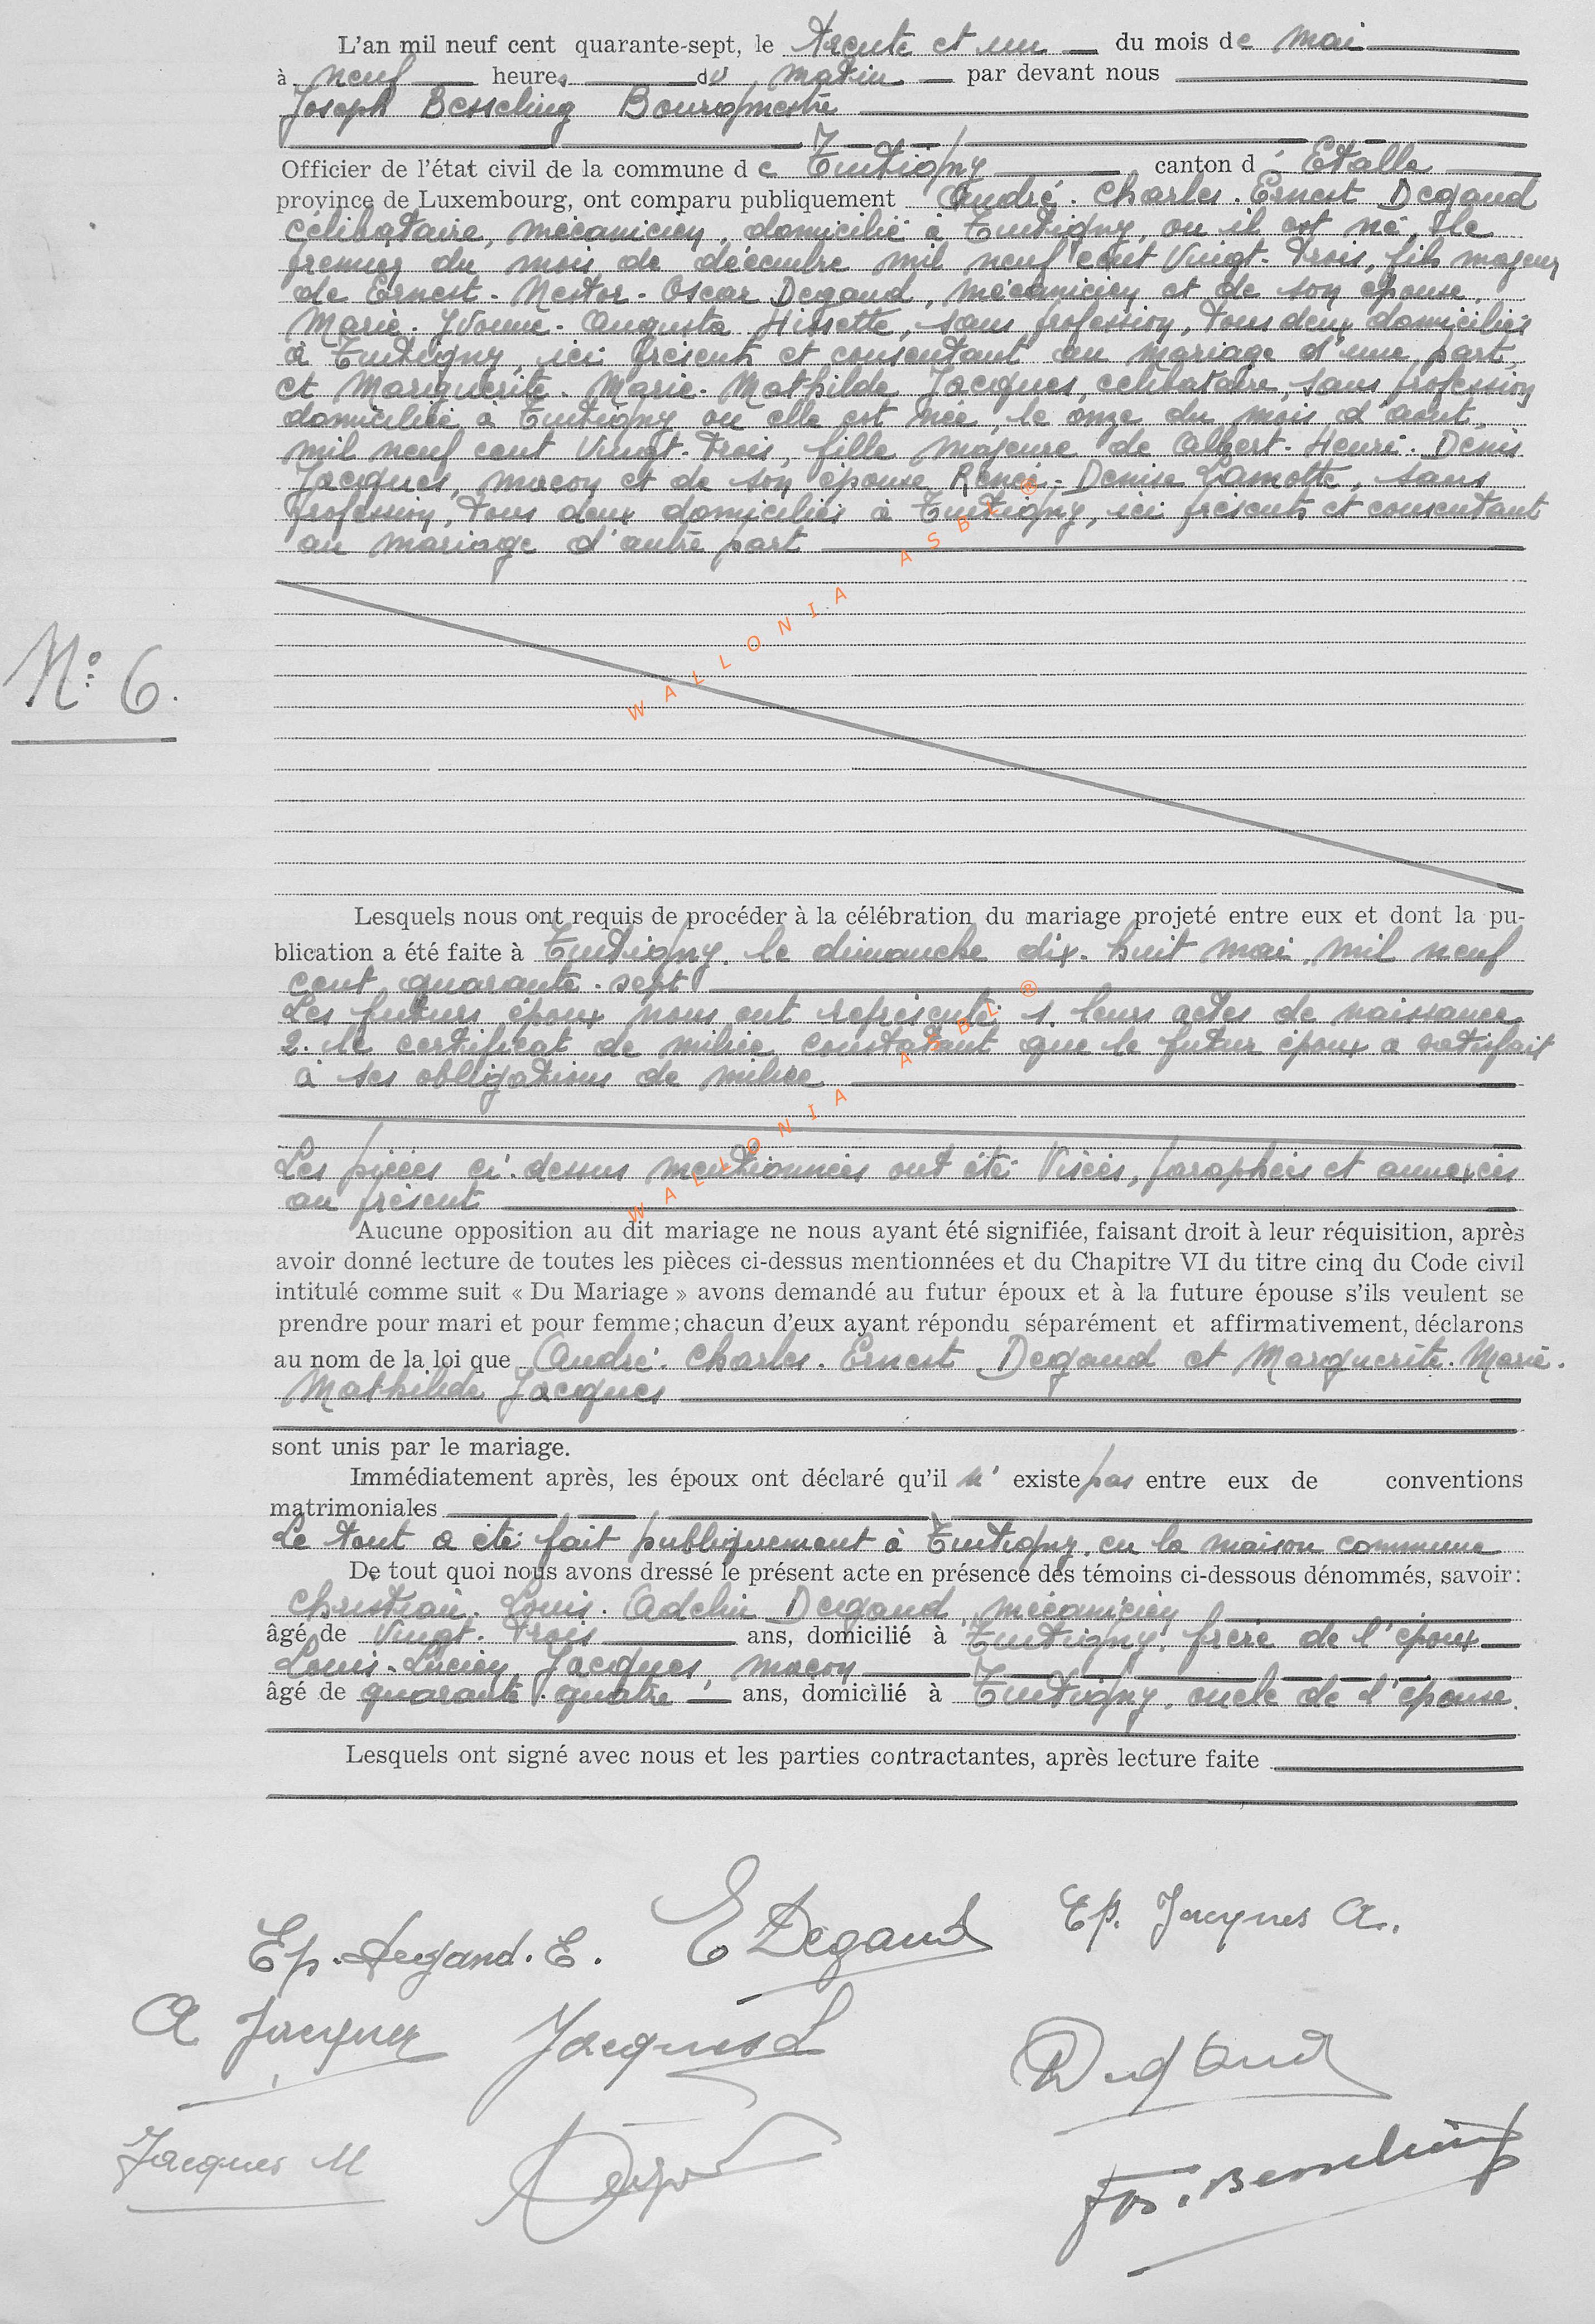 L'an mil neuf cent quarante-sept, le trente et un du mois de mai
à neuf heures du matin par devant nous
Joseph Besseling Bourgmestre
Officier de l'état civil de la commune de Tintigny canton d'Etalle
province de Luxembourg, ont comparu publiquement André. Charles. Ernest Degand
célibataire, mécanicien, domicilié à Tintigny, ou il est né, le
premier du mois de décembre mil neuf cent vingt-trois, fils majeur
de Ernest-Nestor-Oscar Degand, mécanicien et de son épouse,
Marie-Yvonne-Augusta Hissette, sans profession, tous deux domiciliés
à Tintigny, ici présents et consentant au mariage d'une part
et Marguerite-Marie-Mathilde Jacques, célibataire, sans profession
domiciliée à Tintigny ou elle est née, le onze du mois d'août
mil neuf cent vingt-trois, fille majeure de Albert-Henri-Denis
Jacques, maçon et de son épouse Renée-Denise Lamotte, sans
profession, tous deux domiciliés à Tintigny, ici présents et consentant
au mariage d'autre part
N° 6.
WALLONIA ASBL ®
Lesquels nous ont requis de procéder à la célébration du mariage projeté entre eux et dont la pu-
blication a été faite à Tintigny, le dimanche dix-huit mai mil neuf
cent quarante-sept
Les futurs époux nous ont représenté: 1. leurs actes de naissance
2. le certificat de milice constatant que le futur époux a satisfait
à ses obligations de milice
WALLONIA ASBL ®
Les pièces ci-dessus mentionnées ont été visées, paraphées et annexées
au présent
Aucune opposition au dit mariage ne nous ayant été signifiée, faisant droit à leur réquisition, après
avoir donné lecture de toutes les pièces ci-dessus mentionnées et du Chapitre VI du titre cinq du Code civil
intitulé comme suit « Du Mariage » avons demandé au futur époux et à la future épouse s'ils veulent se
prendre pour mari et pour femme; chacun d'eux ayant répondu séparément et affirmativement, déclarons
au nom de la loi que André-Charles-Ernest Degand et Marguerite-Marie-
Mathilde Jacques
sont unis par le mariage.
Immédiatement après, les époux ont déclaré qu'il n'existe pas entre eux de conventions
matrimoniales
Le tout a été fait publiquement à Tintigny, en la maison commune
De tout quoi nous avons dressé le présent acte en présence des témoins ci-dessous dénommés, savoir:
Christian-Louis-Adelin Degand, mécanicien
âgé de vingt-trois ans, domicilié à Tintigny, frère de l'époux
Louis-Lucien Jacques maçon
âgé de quarante-quatre ans, domicilié à Tintigny, oncle de l'épouse.
Lesquels ont signé avec nous et les parties contractantes, après lecture faite
Ep. Degand. E. E Degand Ep. Jacques A.
A Jacques Jacques L Degand
Jacques M Jos. Besseling